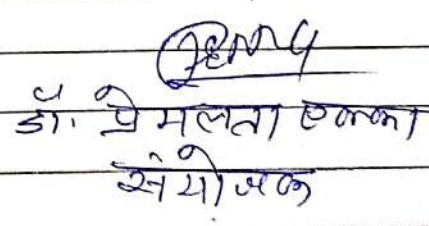 डॉ. प्रेमलता एक्का
संयोजक